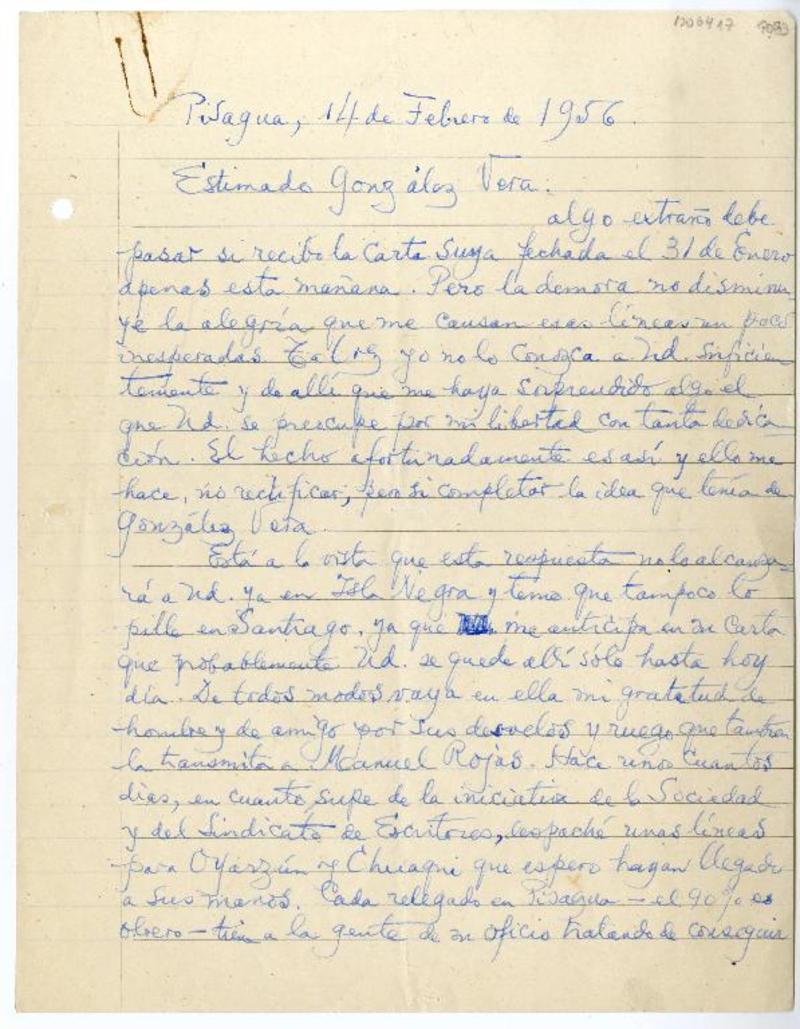 1200417
Pisagua, 14 de Febrero de 1956.
Estimado González Vera:
algo extraño debe
pasar si recibo la carta suya fechada el 31 de Enero
apenas esta mañana. Pero la demora no disminu-
ye la alegría que me causan esas líneas un poco
inesperadas. Talvez yo no lo conozca a Ud. suficien
temente y de allí que me haya sorprendido algo el
que Ud. se preocupe por mi libertad con tanta dedica-
ción. El hecho afortunadamente es así y ello me
hace, no rectificar, pero si completar la idea que tenía de
González Vera.
Está a la vista que esta respuesta no lo alcanza-
rá a Ud. ya en Isla Negra y temo que tampoco lo
pille en Santiago, ya que me anticipa en su carta
que probablemente Ud. se quede allí sólo hasta hoy
día. De todos modos vaya en ella mi gratitud de
hombre y de amigo por sus desvelos y ruego que tambien
la transmita a Manuel Rojas. Hace unos cuantos
días, en cuanto supe de la iniciativa de la Sociedad
y del Sindicato de Escritores, despaché unas líneas
para Oyarzún y Chuaqui que espero hayan llegado
a sus manos. Cada relegado en Pisagua - el 90% es
obrero - tien a la gente de su oficio tratando de conseguir